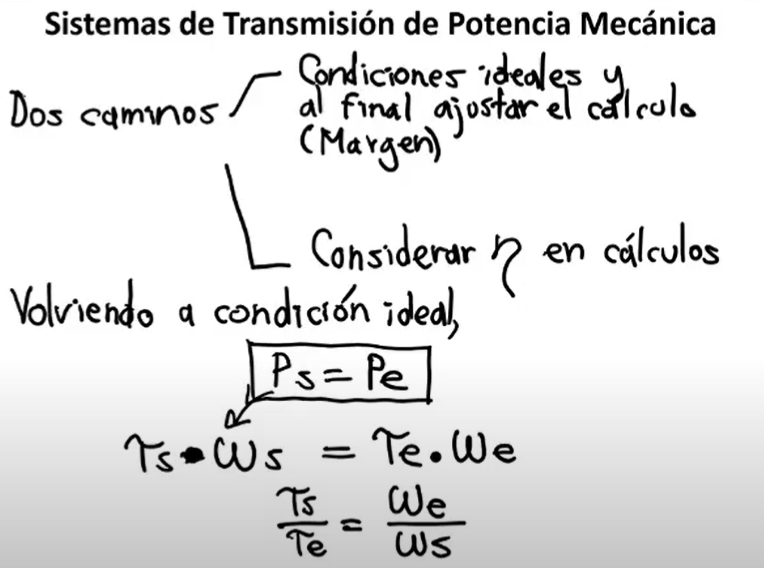 Sistemas de Transmisión de Potencia Mecánica
Dos caminos
Condiciones ideales y
al final ajustar el cálculo
(Margen)
Considerar η en cálculos
Volviendo a condición ideal,
Ps = Pe
τs • ωs = τe • ωe
τs/τe = ωe/ωs